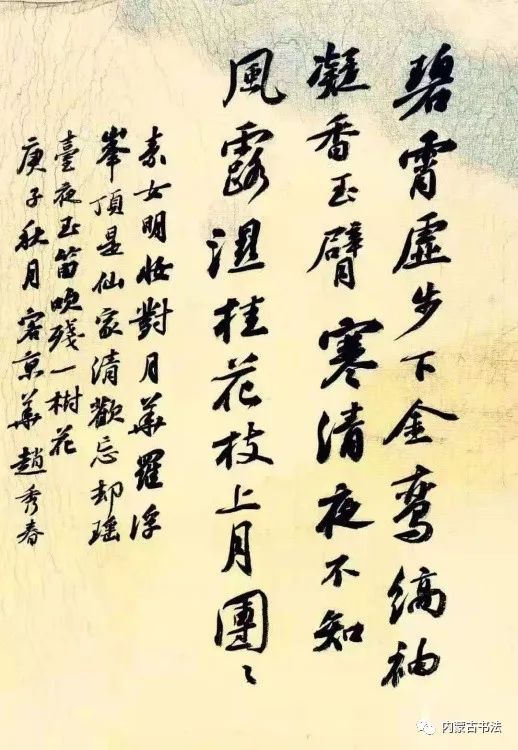 碧霄虚步下金鸾缟袖
凝香玉臂寒清夜不知
風露濕桂花枝上月團〻
素女明妝對月華羅浮
峯頂是仙家清歡忘却瑶
臺夜玉笛吹殘一樹花
庚子秋月客京華趙秀春
内蒙古书法